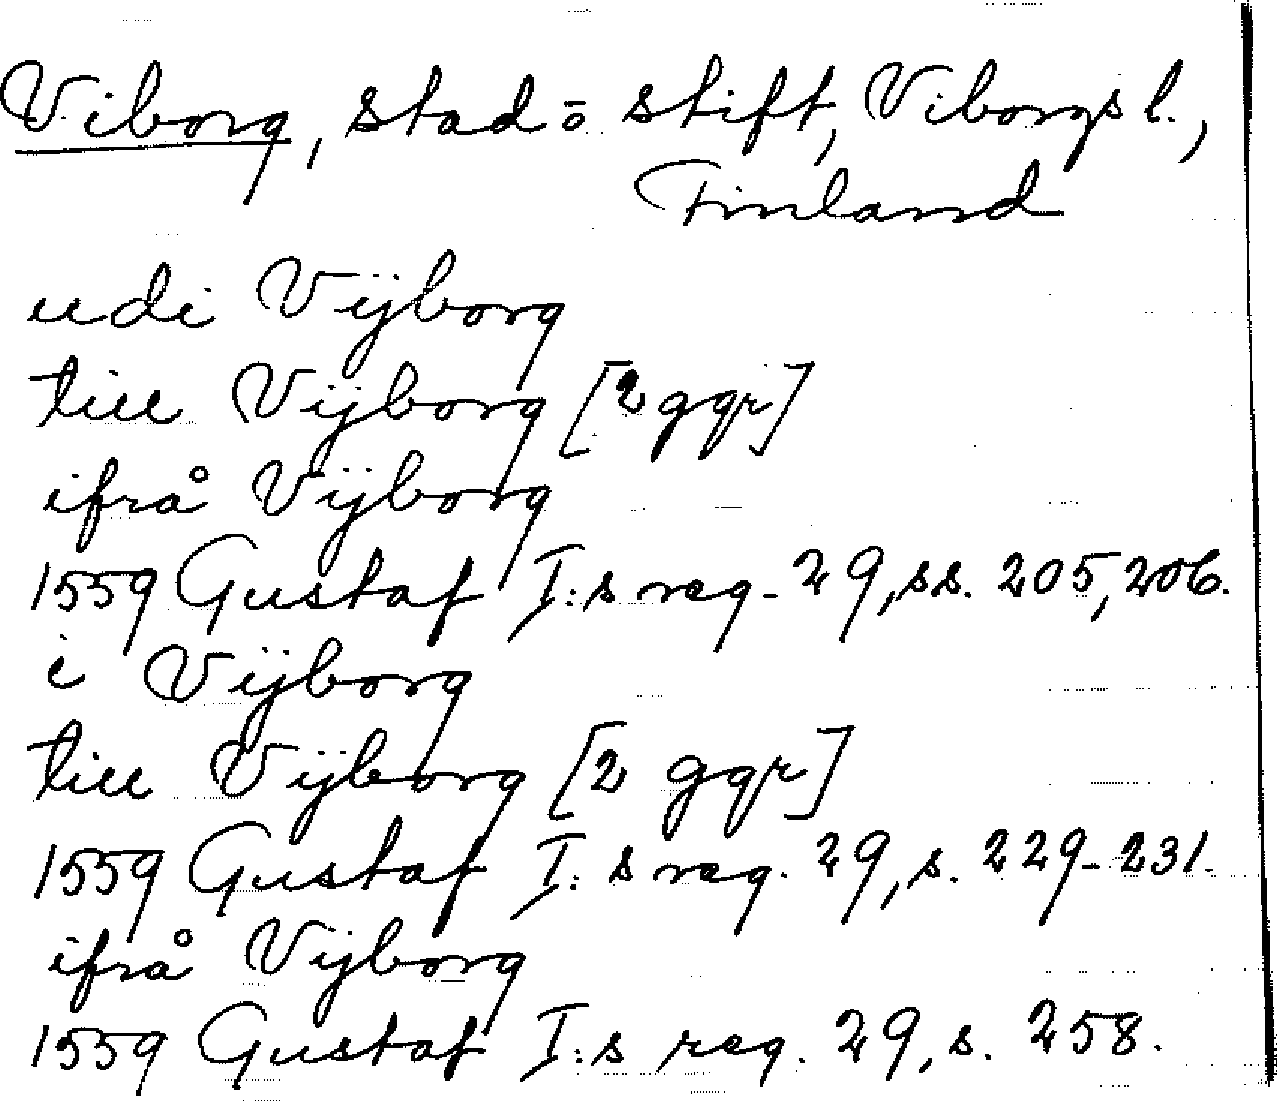 Viborg, stad o. stift, Viborgs l.,
Finland
udi Vijborg
till Vijborg [2 ggr]
ifrå Vijborg
1559 Gustaf I:s reg. 29, ss. 205, 206.
i Vijborg
till Vijborg [2 ggr]
1559 Gustaf I:s reg. 29, s. 229-231.
ifrå Vijborg
1559 Gustaf I:s reg. 29, s. 258.